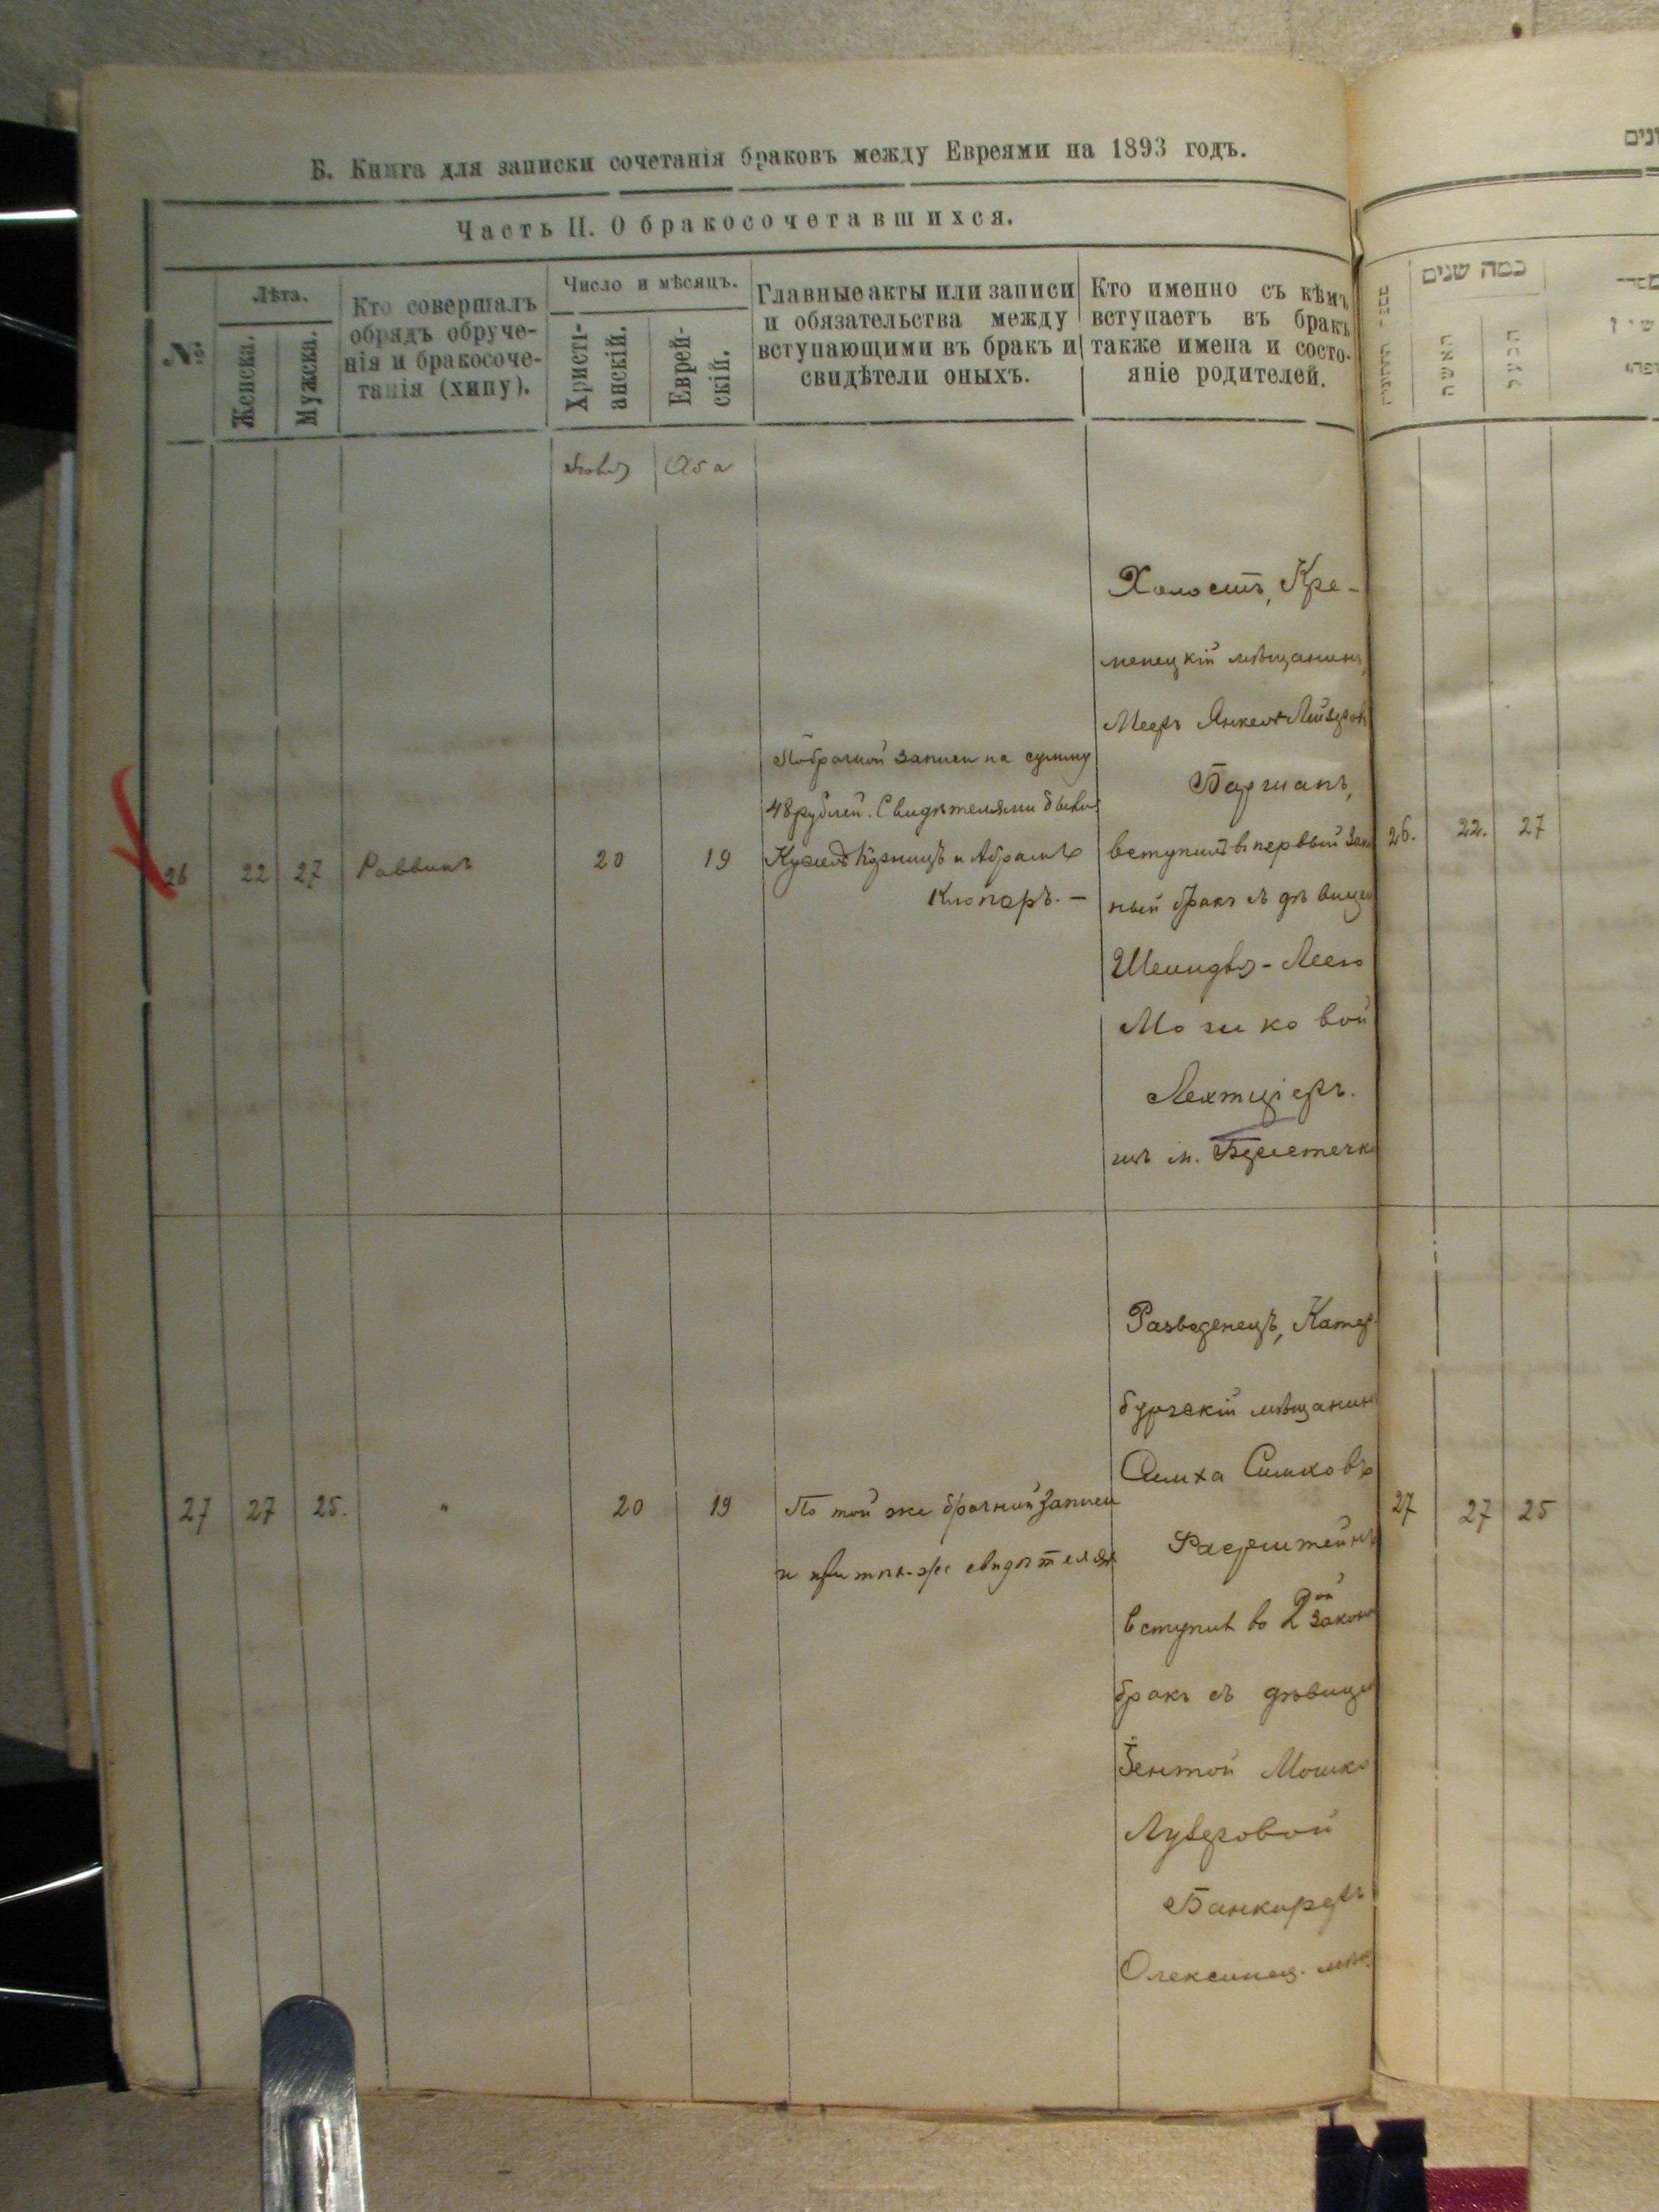 Б. Книга для записки сочетанія браковъ между Евреями на 1893 годъ.
Часть II. О бракосочетавшихся.
№
Лѣта.
Женска.
Мужска.
Кто совершалъ
обрядъ обруче-
нія и бракосоче-
танія (хипу).
Число и мѣсяцъ.
Христі-
анскій.
Еврей-
скій.
Главные акты или записи
и обязательства между
вступающими въ бракъ и
свидѣтели оныхъ.
Кто именно съ кѣмъ
вступаетъ въ бракъ
также имена и состо-
яніе родителей.
כמה שנים
האשה
הבעל
26
22
27
Раввинъ
20
19
записи на сумму
48 рублей. Свидѣтелями были
и Абрамъ
Клоперъ. —
Холостъ, Кре-
менецкій мѣщанинъ,
Мееръ Янкель
вступилъ въ первый зако
ный бракъ съ дѣвицею
Шейндлею-Леею
Мошковой
Лехтціеръ.
изъ м. Берестечка
26.
22.
27
27
27
25.
"
20
19
По той же брачной записи
и при тѣхъ-же свидѣтеляхъ
Разведенецъ, Катер-
бургскій мѣщанинъ
Симха Симховъ
вступилъ во 2ой законн
бракъ съ дѣвицею
Мошко
Лузеровой
Олексинец. мѣщ
27
27
25